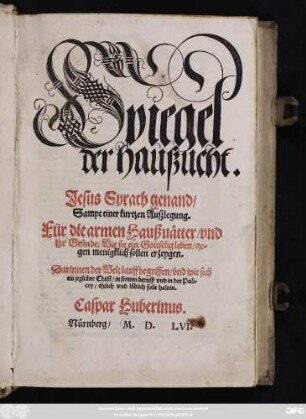 Spiegel
der Haußzucht.
Jesus Syrach genand/
Sampt einer kurtzen Außlegung.
Für die armen Haußuätter/vnd
jhr Gesinde/Wie sie ein Gottselig leben/ge-
gen menigklich sollen erzeygen.
Darinnen der Welt lauff begriffen/vnd wie sich
ein yetzlicher Christ/in seinem beruff vnd in der Poli-
cey/ehrlich vnd löblich solle halten.
Caspar Huberinus.
Nürnberg/ M. D. LVI.